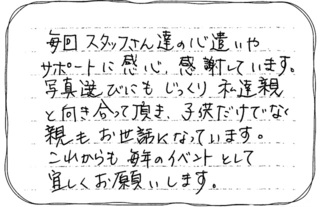 毎回スタッフさん達の心遣いや
サポートに感心、感謝しています。
写真選びにもじっくり私達親
と向き合って頂き、子供だけでなく
親もお世話になっています。
これからも毎年のイベントとして
宜しくお願いします。